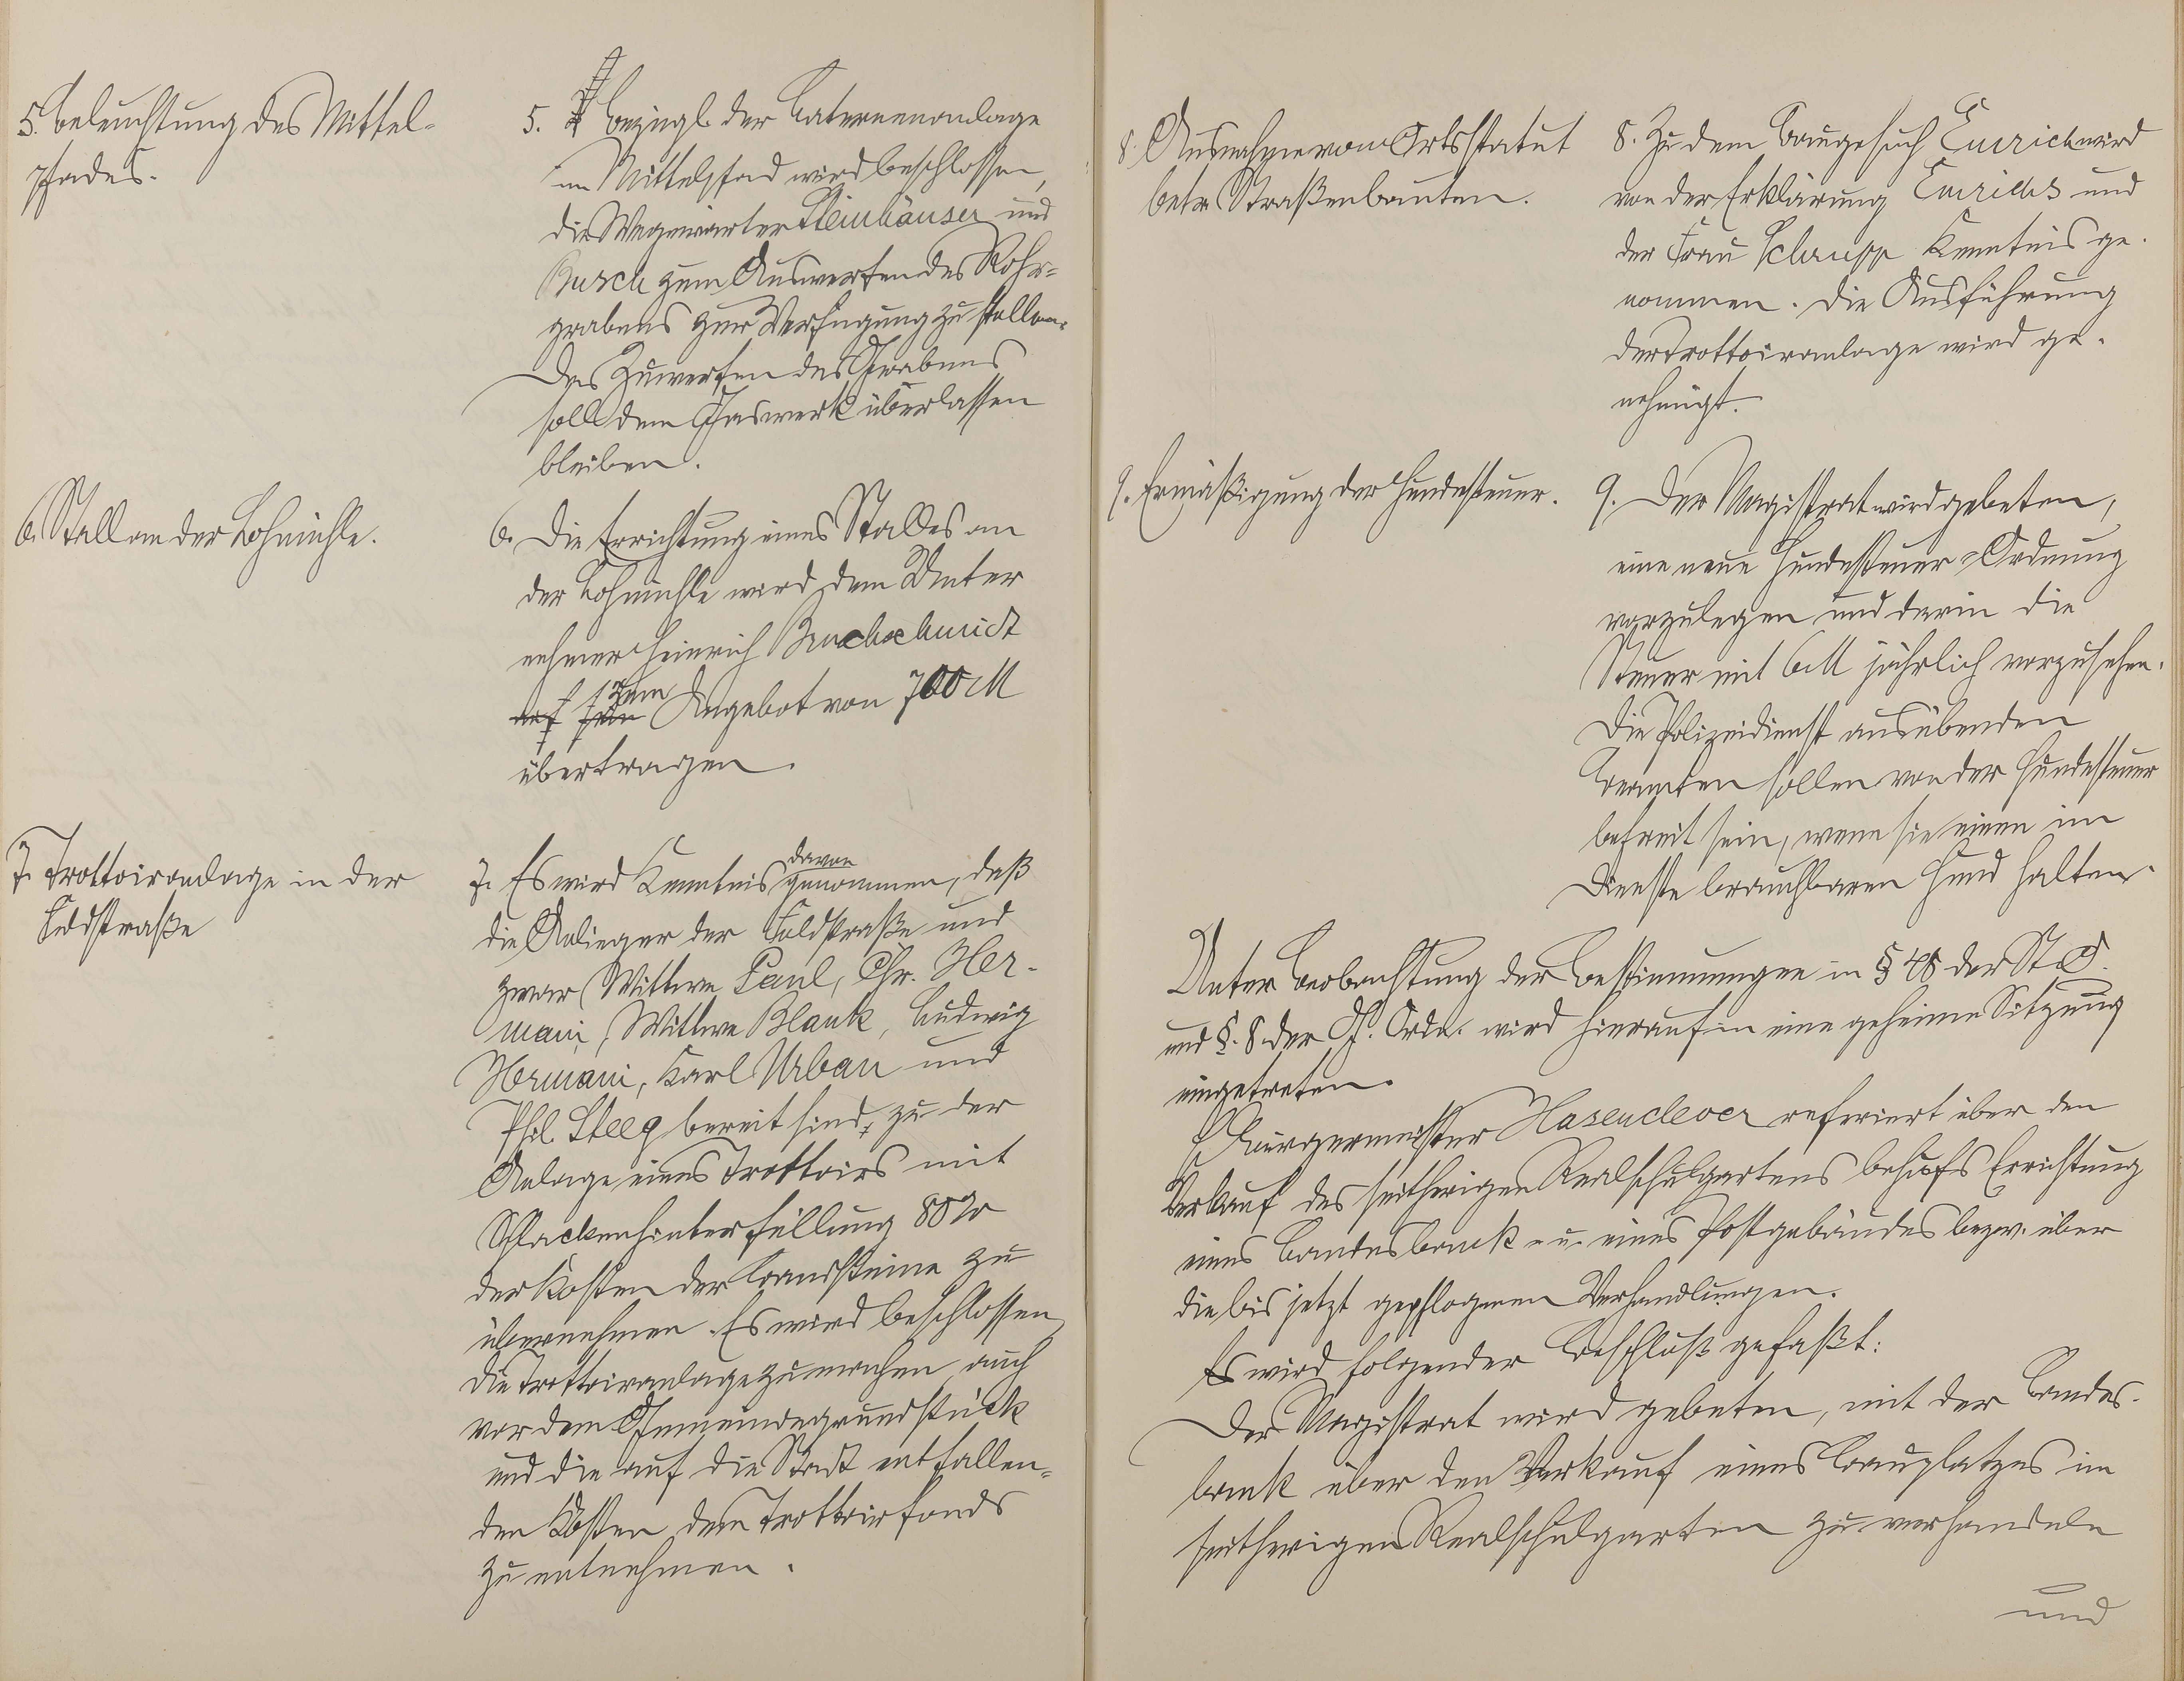 5. Beleuchtung des Mittel-
pfades.
5. Bezügl. der Laternenanlage
im Mittelpfad wird beschlossen,
die Wegewärter Steinhäuser und
Busch zum Auswerfen des Rohr-
grabens zur Verfügung zu stellen.
Das Zuwerfen des Grabens
soll dem Gaswerk überlassen
bleiben.
6. Stall an der Lohmühle.
6. Die Errichtung eines Stalles an
der Lohmühle wird dem Unter
nehmer Heinrich Buchschmidt
auf sein zum Angebot von 700 M
übertragen.
7. Trottoiranlage in der
Feldstraße
7. Es wird Kenntnis davon genommen, daß
die Anlieger der Feldstraße und
zwar Wittwe Paul, Chr. Her-
mani, Wittwe Blank, Ludwig
Hermani, Karl Urban und
Phil. Steeg bereit sind, zu der
Anlage eines Trottoirs mit
Schlackenhinterfüllung 80%
der Kosten der Bandsteine zu
übernehmen. Es wird beschlossen,
die Trottoiranlage zu machen auch
vor dem Gemeindegrundstück
und die auf die Stadt entfallen-
den Kosten dem Trottoirfonds
zu entnehmen.
8. Ausnahme vom Ortsstatut
betr. Straßenbauten.
8. Zu dem Baugesuch Emrich wird
von der Erklärung Emrichs und
der Frau Schrupp Kenntnis ge-
nommen. Die Ausführung
der Trottoiranlage wird ge-
nehmigt.
9. Ermäßigung der Hundesteuer.
9. Der Magistrat wird gebeten,
eine neue Hundesteuer-Ordnung
vorzulegen und darin die
Steuer mit 6 M jährlich vorzusehen.
Die Polizeidienst ausübenden
Beamten sollen von der Hundesteuer
befreit sein, wenn sie einen im
Dienste brauchbaren Hund halten.
Unter Beobachtung der Bestimmungen in § 48 der St. O.
und §. 8 der G. Ordn. wird hierauf in eine geheime Sitzung
eingetreten.
Bürgermeister Hasenclever referiert über den
Verkauf des seitherigen Realschulgartens behufs Errichtung
eines Landesbank- u. eines Postgebäudes bezw. über
die bis jetzt gepflogenen Verhandlungen.
Es wird folgender Beschluß gefaßt:
Der Magistrat wird gebeten, mit der Landes-
bank über den Verkauf eines Bauplatzes im
seitherigen Realschulgarten zu verhandeln
und